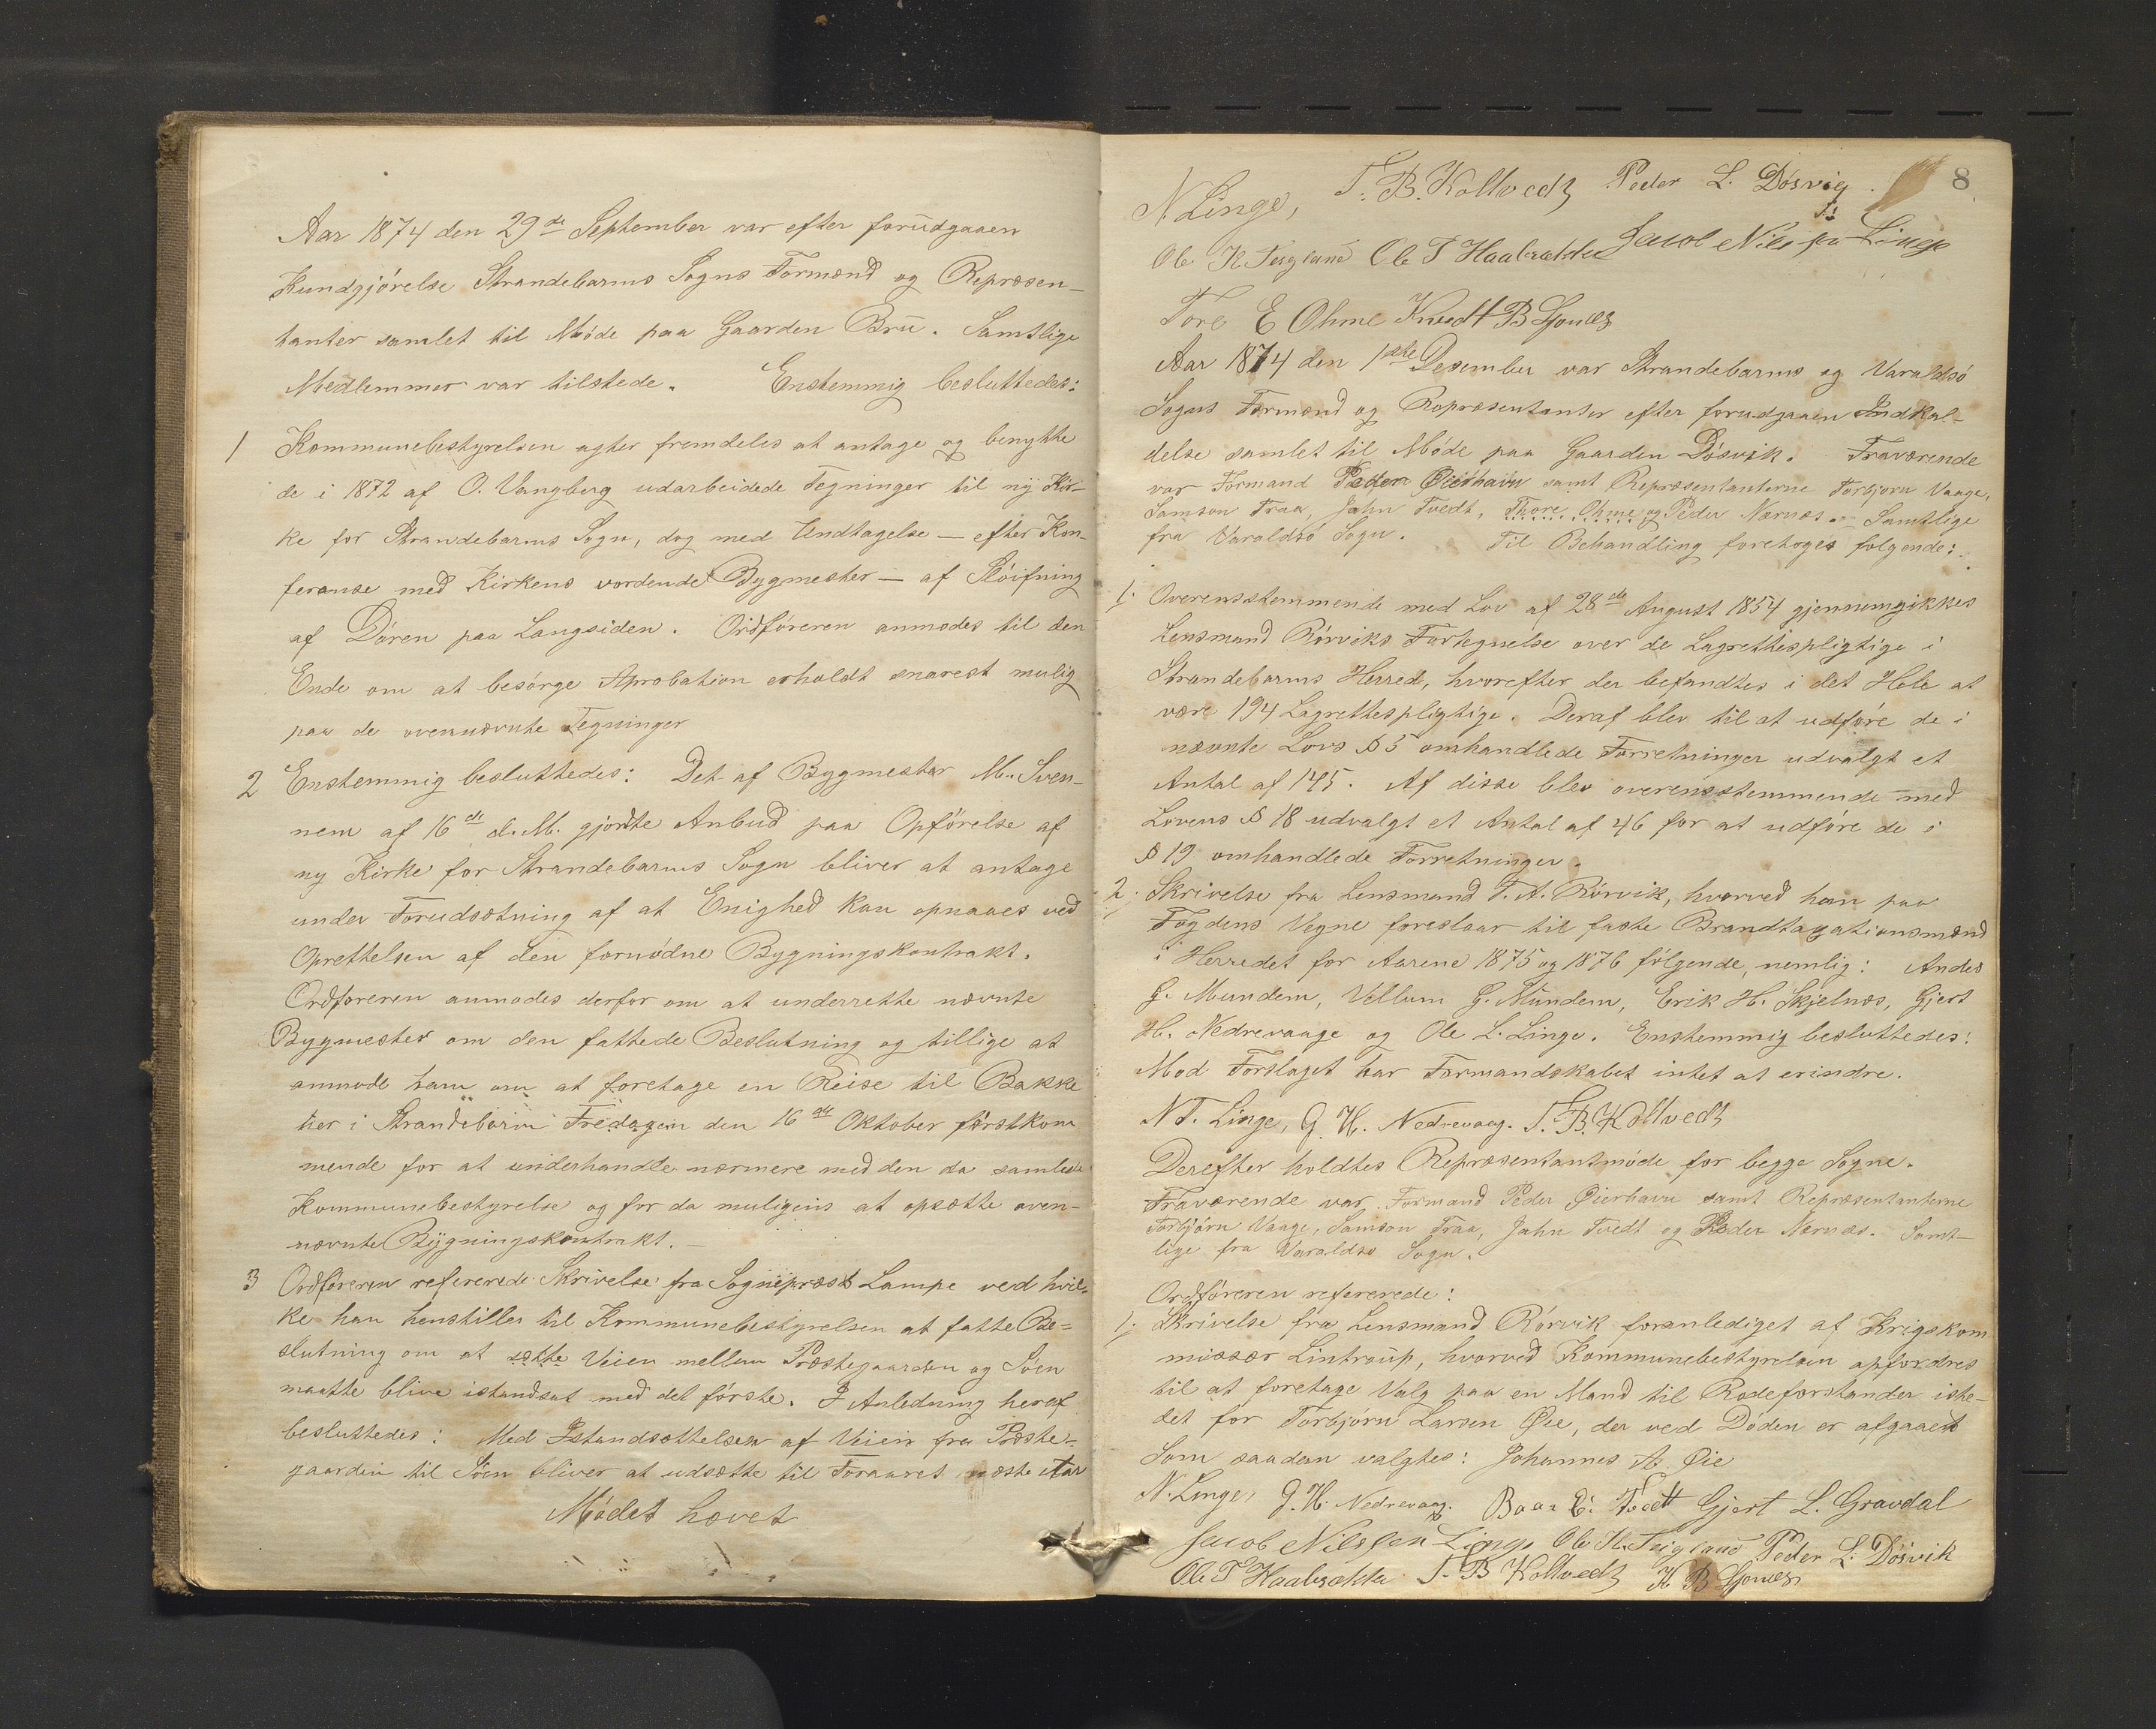 Aar 1874 den 29de September var efter forudgaaen
Kundgjørelse Strandebarms Sogns Formænd og Repræsen-
tanter samlet til Møde paa Gaarden Bru. Samtlige
Medlemmer var tilstede. Enstemmig besluttedes:
1 Kommunebestyrelsen agter fremdeles at antage og benytte
de i 1872 af O. Vangberg udarbeidede Tegninger til ny Kir-
ke for Strandebarms Sogn, dog med Undtagelse – efter Kon-
feranse med Kirkens vordende Bygmester – af Sløifning
af Døren paa Langsiden. Ordføreren anmodes til den
Ende om at besørge Aprobation erholdt snarest mulig
paa de ovennævnte Tegninger
2 Enstemmig besluttedes: Det af Bygmester M. Sven-
nem af 16de d. M. gjordte Anbud paa Opførelse af
ny Kirke for Strandebarms Sogn bliver at antage
under Forudsætning af at Enighed kan opnaaes ved
Oprettelsen af den fornødne Bygningskontrakt.
Ordføreren anmodes derfor om at underrette nævnte
Bygmester om den fattede Beslutning og tillige at
anmode ham om at foretage en Reise til Bakke
her i Strandebarm Fredagen den 16de Oktober førstkom
mende for at underhandle nærmere med den da samlede
Kommunebestyrelse og for da muligens at opsætte oven-
nævnte Bygningskontrakt. –
3 Ordføreren refererede Skrivelse fra Sogneprest Lampe ved hvil-
ke han henstiller til Kommunebestyrelsen at fatte Be-
slutning om at sætte Veien mellem Præstegaarden og Søen
maatte blive istandsat med det første. I Anledning heraf
besluttedes: Med Istandsættelsen af Veien fra Præste-
gaarden til Søen bliver at udsætte til Foraaret næste Aar
Mødet hævet
8
N. Linge, T. B. Kollvedt Peder L. Døsvig.
Ole K. Teigland Ole T Haabrække Jacob Nils pa Linge
Tore E Ohme Knudt B Lyones
Aar 1874 den 1ste Desember var Strandebarms og Varaldsø
Sogns Formænd og Repræsentanter efter forudgaaen Indkal-
delse samlet til Møde paa Gaarden Døsvik. Fraværende
var Formand Peder Øierhavn samt Repræsentanterne Torbjørn Vaage,
Samson Traa, Jahn Tvedt, Thore Ohme og Peder Nernæs. – Samtlige
fra Varaldsø Sogn. Til Behandling foretoges følgende:
1. Overensstemmende med Lov af 28de August 1854 gjennemgikkes
Lensmand Rørviks Fortegnelse over de Lagrettespligtige i
Strandebarms Herred, hvorefter der befandtes i det Hele at
være 194 Lagrettespligtige. Deraf blev til at udføre de i
nævnte Lovs § 5 omhandlede Forretninger udvalgt et
Antal af 145. Af disse blev overensstemmende med
Lovens § 18 udvalgt et Antal af 46 for at udføre de i
§ 19 omhandlede Forretninger.
2. Skrivelse fra Lensmand T. A. Rørvik, hvorved han paa
Fogdens Vegne foreslaar til faste Brandtaxationsmænd
i Herredet for Aarene 1875 og 1876 følgende, nemlig: Andes
G. Mundem, Vellum G. Mundem, Erik H. Skjelnæs, Gjert
H. Nedrevaage og Ole L. Linge. Enstemmig besluttedes:
Mod Forslaget har Formandskabet intet at erindre.
N T. Linge, G. H. Nedrevaag. T. B. Kollvedt
Derefter holdtes Repræsentantmøde for begge Sogne.
Fraværende var Formand Peder Øierhavn samt Repræsentanterne
Torbjørn Vaage, Samson Traa, Jahn Tvedt og Peder Nernæs. Samt-
lige fra Varaldsø Sogn.
Ordføreren refererede:
1. Skrivelse fra Lensmand Rørvik foranlediget af Krigskom
missær Lintrup, hvorved Kommunebestyrelsen opfordres
til at foretage Valg paa en Mand til Rodeforstander iste-
det for Torbjørn Larsen Øie, der ved Døden er afgaaet
Som saadan valgtes: Johannes A. Øie
N. Linge, G. H. Nedrevaag. Baar E. Tvedt Gjert L. Gravdal
Jacob Nilssen Linge Ole K. Teigland Peder L. Døsvik
Ole T Haabrække T. B Kollvedt K B Lyones